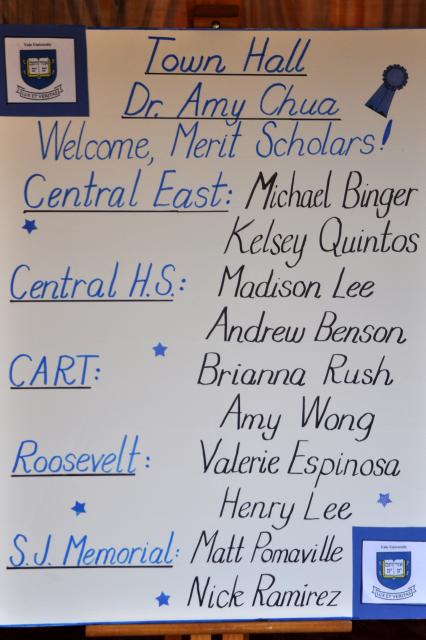 Yale University
LUX ET VERITAS
Town Hall
Dr. Amy Chua
Welcome, Merit Scholars!
Central East: Michael Binger
Kelsey Quintos
Central H.S.: Madison Lee
Andrew Benson
CART: Brianna Rush
Amy Wong
Roosevelt: Valerie Espinosa
Henry Lee
S.J. Memorial: Matt Pomaville
Nick Ramirez
Yale University
LUX ET VERITAS